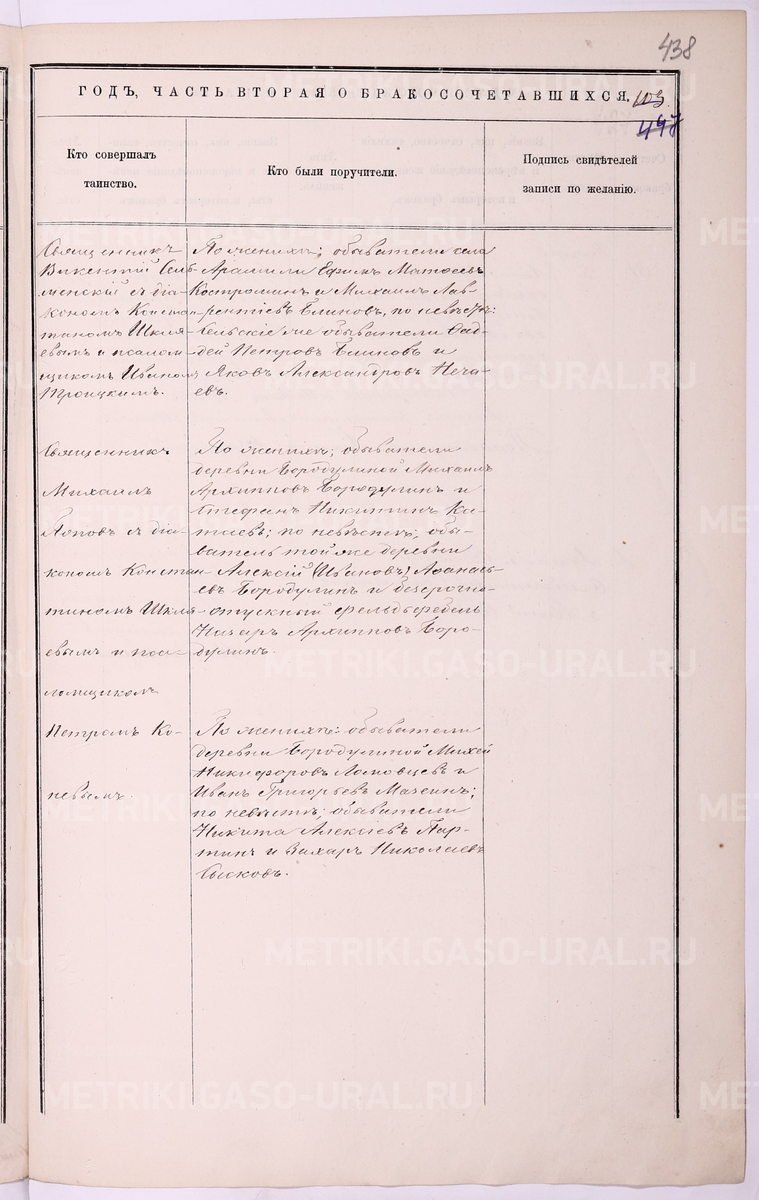 438
ГОДЪ, ЧАСТЬ ВТОРАЯ О БРАКОСОЧЕТАВШИХСЯ.
103
448
Кто совершалъ
таинство.
Кто были поручители.
Подпись свидѣтелей
записи по желанію.
Священникъ
Викентій
менскій съ діа-
кономъ Конста
тиномъ Шкля
евымъ и псалом
щикомъ Иваномъ
Троицкимъ.
По женихѣ; обыватели села
Арамили Ефимъ Матѳеевъ
Костроминъ и Михаилъ Лав-
рентіевъ Блиновъ, по невѣстѣ:
сельскіе же обыватели Ѳад-
дей Петровъ Блиновъ и
Яковъ Александровъ Неча-
евъ.
Священникъ
Михаилъ
Поповъ съ діа-
кономъ Констан
тиномъ Шкля-
евымъ и псал-
ломщикомъ
Петромъ Ко-
невымъ.
По женихѣ; обыватели
деревни Бородулиной Михаилъ
Архиповъ Бородулинъ и
Стефанъ Никитинъ Ка-
таевъ; по невѣстѣ; обы-
ватель той же деревни
Алексій (Ивановъ) Аѳанась-
евъ Бородулинъ и безсрочно-
отпускный фельдфебель
Назаръ Архиповъ Боро-
дулинъ.
По женихѣ: обыватели
деревни Бородулиной Михей
Никифоровъ и
Иванъ Григорьевъ
по невѣстѣ; обыватели
Никита Алексіевъ Пар-
тинъ и Захаръ Николаевъ
Сысковъ.
METRIKI.GASO-URAL.RU